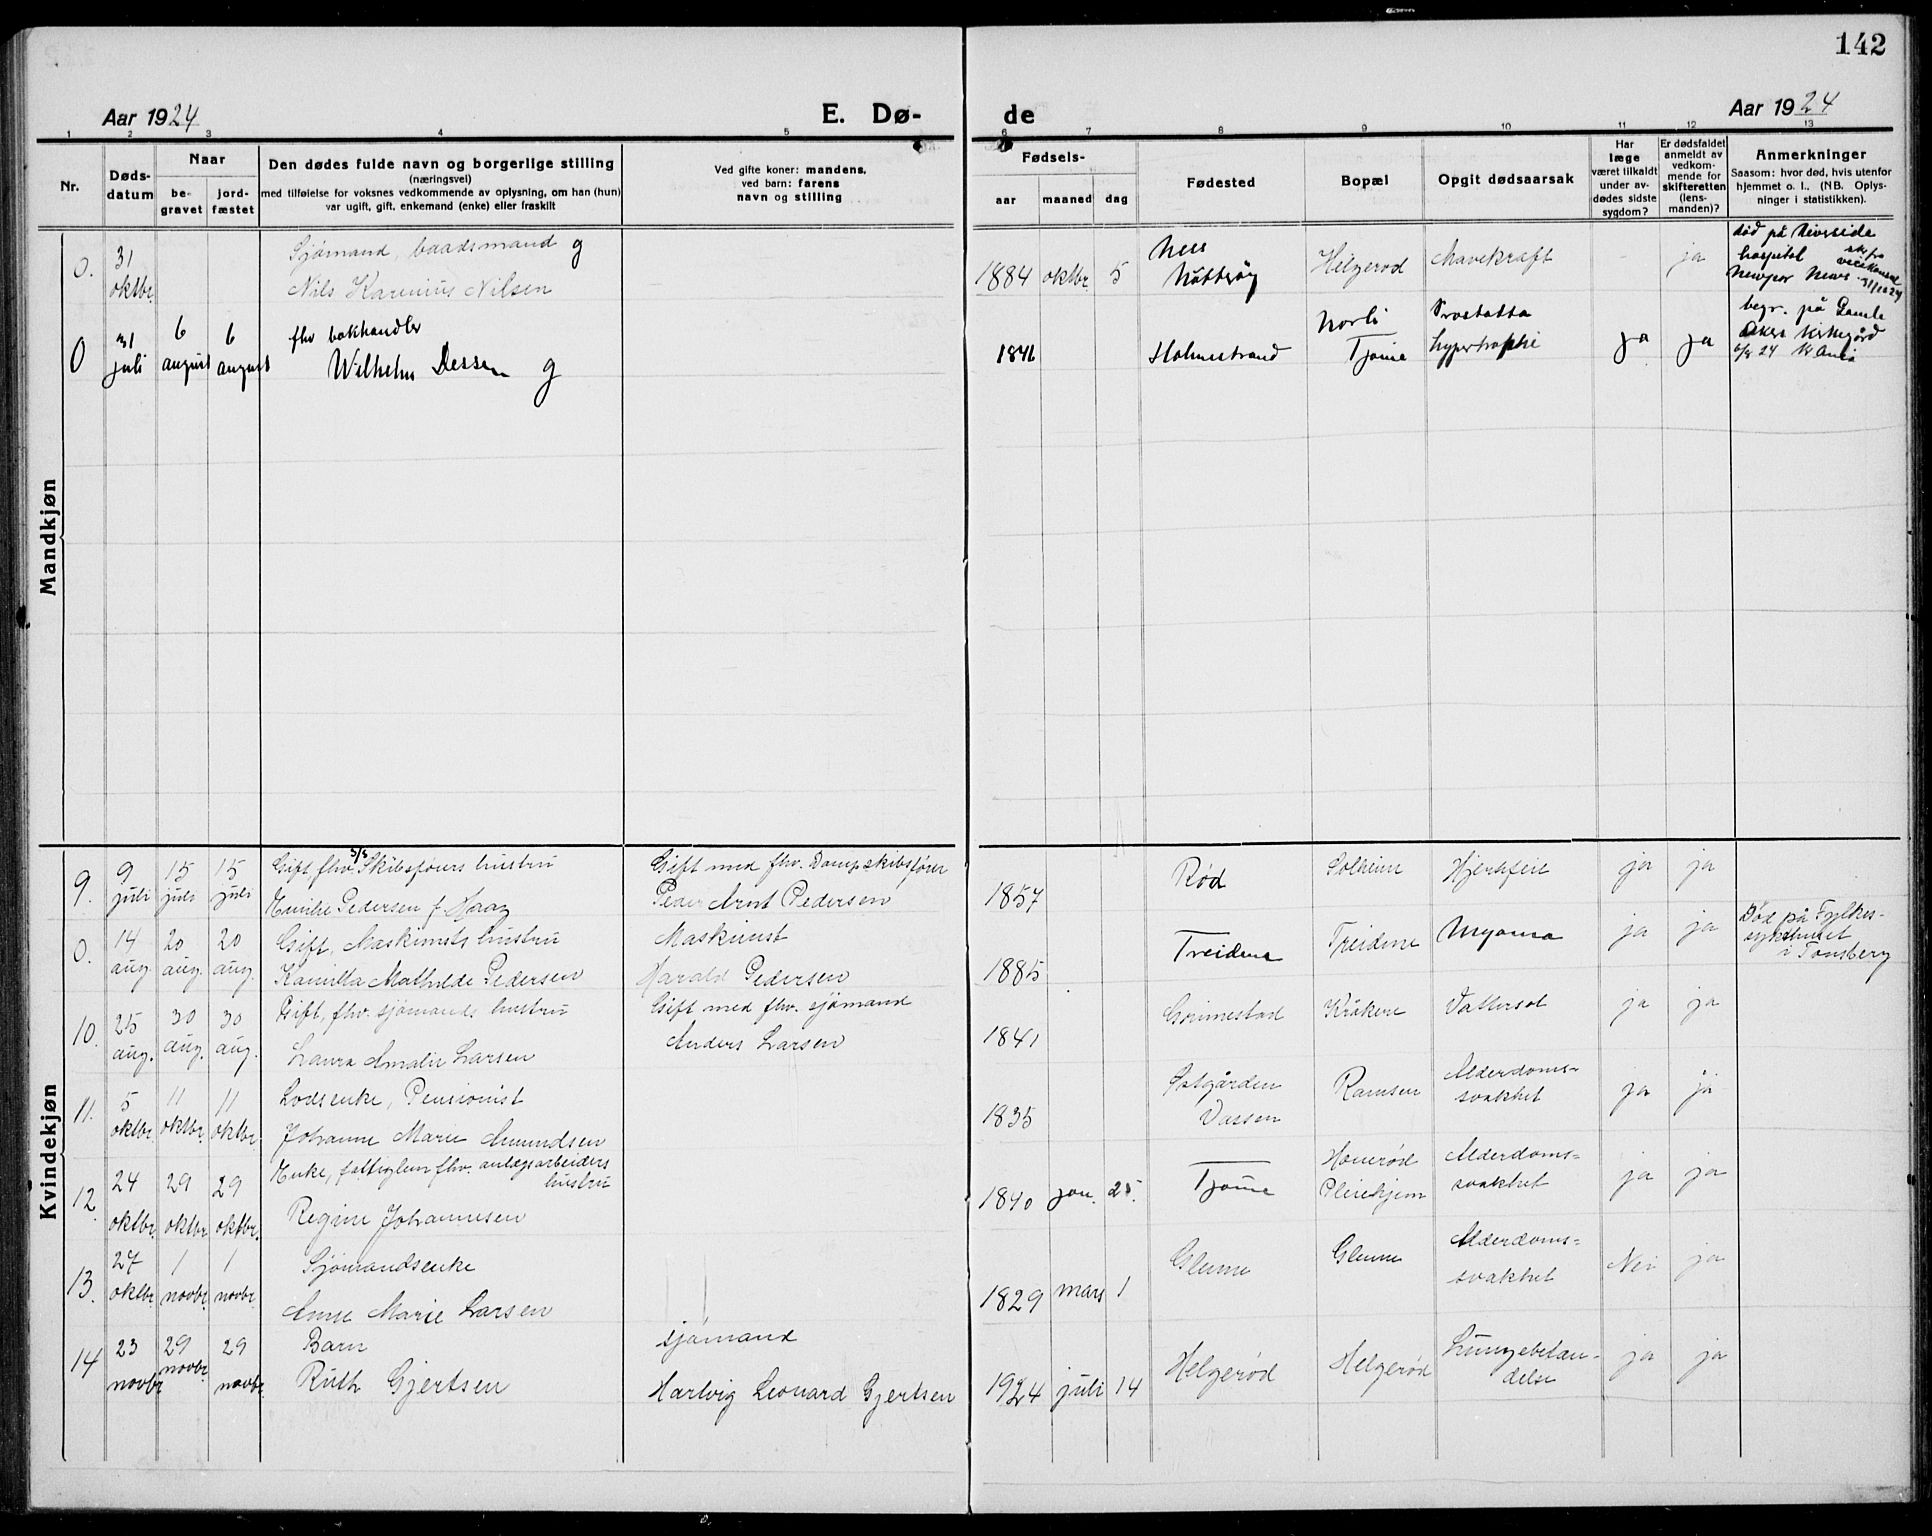 142
Aar 1924
E. Dø-
de
Aar 1924
1 2 3 4 5 6 7 8 9 10 11 12 13
Nr.
Døds-
datum
Naar
be-
gravet
jord-
fæstet
Den dødes fulde navn og borgerlige stilling
(næringsvei)
med tilføielse for voksnes vedkommende av oplysning, om han (hun)
var ugift, gift, enkemand (enke) eller fraskilt
Ved gifte koner: mandens,
ved barn: farens
navn og stilling
Fødsels-
aar
maaned
dag
Fødested
Bopæl
Opgit dødsaarsak
Har
læge
været tilkaldt
under av-
dødes sidste
sygdom?
Er dødsfaldet
anmeldt av
vedkom-
mende for
skifteretten
(lens-
manden)?
Anmerkninger
Saasom: hvor død, hvis utenfor
hjemmet o. l.. (NB. Oplys-
ninger i statistikken).
Mandkjøn
0. 31 oktbr.
Sjømand, baadsmand g
Nils Karinius Nilsen
1884 oktbr. 5
Nes
Nøtterøy
Helgerød
Mavekræft
-
ja
død på Riverside
hospital
Newpor News
0 31 juli 6 august 6 august
fhv bokhandler
Wilhelm Dessen g
1846
Holmestrand
Norli
Tjøme
Prostatta
hypertrophi
ja
ja
begr. på Gamle
Akers kirkegård
6/8 24 Kr.ania
Kvindekjøn
9. 9 juli 15 juli 15 juli
Gift, fhv. S/S Skibsførers hustru
Emilie Pedersen f. Haag
Gift med fhv. Dampskibsfører
Peder Arnt Pedersen
1857
Rød
Solheim
Hjertefeil
ja
ja
0. 14 aug. 20 aug. 20 aug.
Gift, Maskinists hustru
Kamilla Mathilde Pedersen
Maskinist
Harald Pedersen
1885
Treidene
Treidene
Myoma
ja
ja
Død på Fylkes-
sykehuset
i Tønsberg
10. 25 aug. 30 aug. 30 aug.
Gift, fhv. sjømands hustru
Laura Amalie Larsen
Gift med fhv. sjømand
Anders Larsen
1841
Grimestad
Kråkere
Vattersot
ja
ja
11. 5 oktbr. 11 oktbr. 11 oktbr.
Lodsenke, Pensionist
Johanne Marie Amundsen
1835
Østgården
Vassen
Ramsen
Alderdoms-
svakhet
ja
ja
12. 24 oktbr. 29 oktbr. 29 oktbr.
Enke, fattiglem fhv. anlægsarbeiders
hustru
Regine Johannesen
1840 jan. 25.
Tjøme
Hønerød
Pleiehjem
Alderdoms-
svakhet
ja
ja
13. 27 oktbr. 1 novbr. 1 novbr.
Sjømandsenke
Anne Marie Larsen
1829 mars 1
Glenne
Glenne
Alderdoms-
svakhet
Nei
ja
14 23 novbr. 29 novbr. 29 novbr.
Barn
Ruth Gjertsen
sjømand
Hartvig Leonard Gjertsen
1924 juli 14
Helgerød
Helgerød
Lungebetæn-
delse
ja
ja